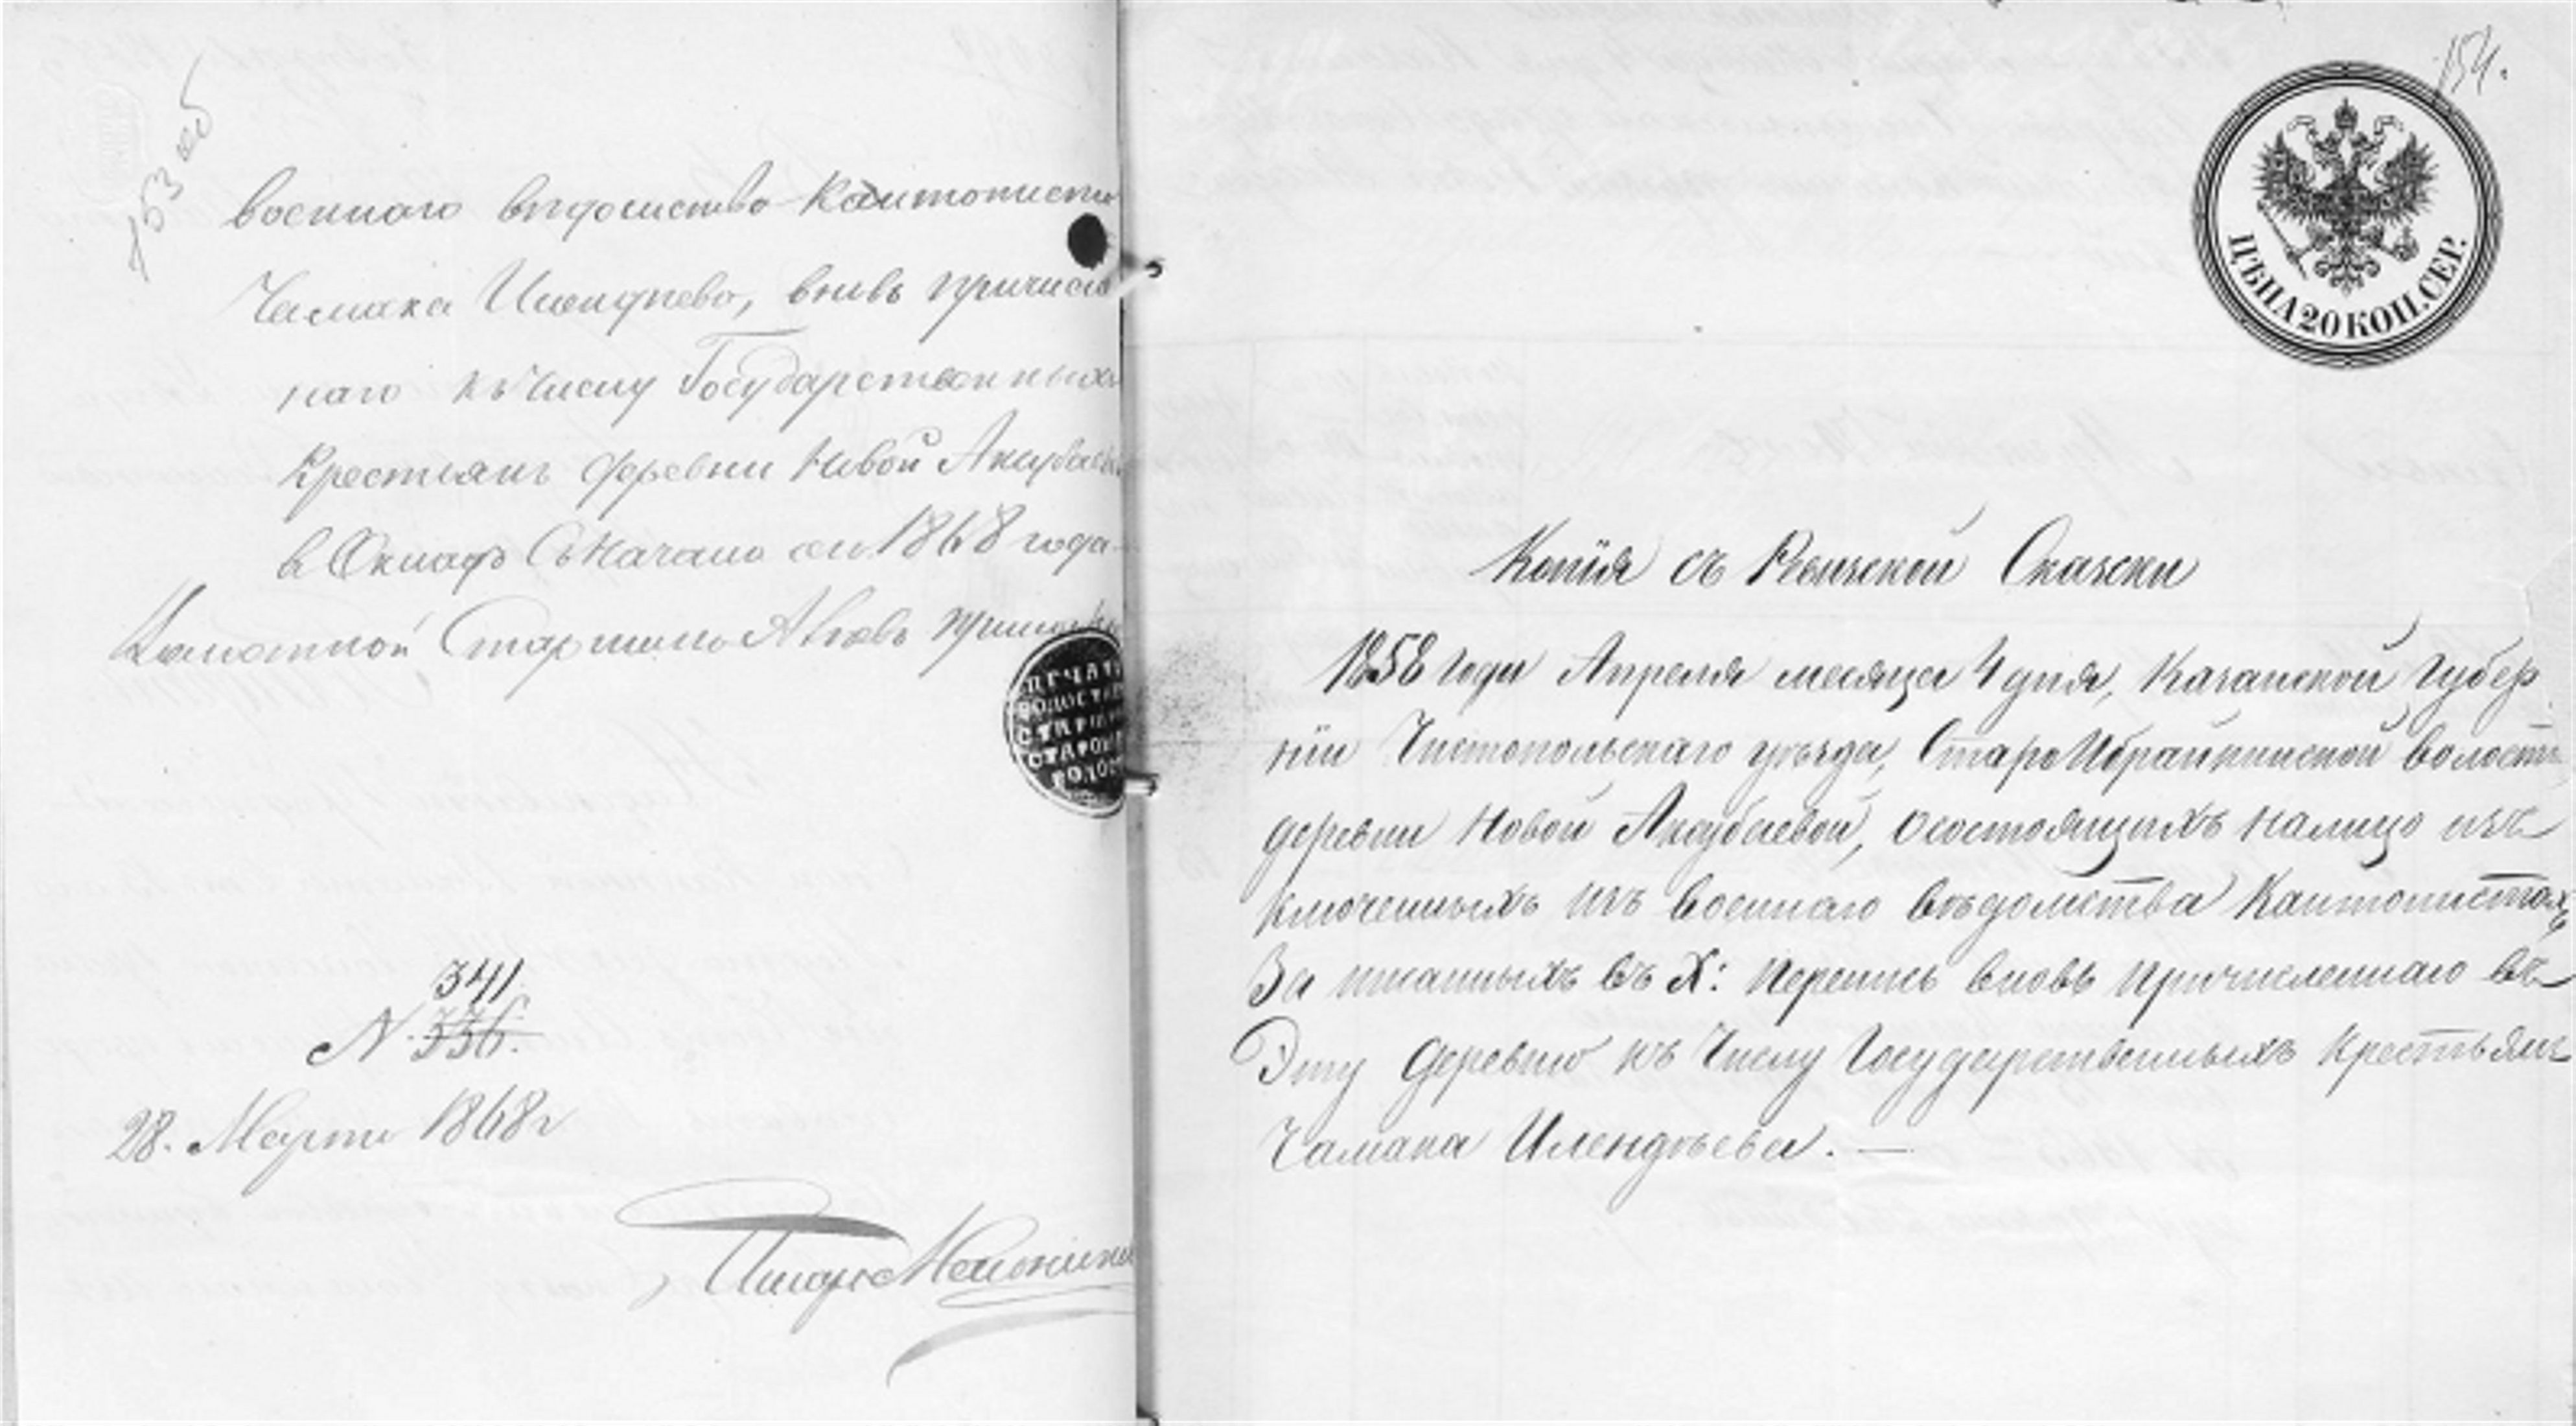 153 об
военнаго ведомства Кантонист
Чамака Илендеева, вновь причисле
наго къ числу Государственныхъ
крестьянъ деревни Новой Акубаев
в Окладъ Съ Начала сего 1868 года
Волостной Старшина
ПЕЧАТЬ
ВОЛОСТНА
СТАРШИ
СТАРОИ
ВОЛОС
341.
N. 336.
28. Марта 1868 г
Писарь
154.
ЦѢНА 20 КОП. СЕР.
Копiя съ Ревизской Сказски
1858 года Апреля месяца 4 дня, Казанской Губер
нiи Чистопольскаго уѣзда, СтароИбрайкинской волости
деревни Новой Акубаевой, о состоящихъ налицо изъ
ключенныхъ изъ военнаго вѣдомства Кантонистах,
За писанныхъ въ X: перепись вновь причисленнаго въ
Эту деревню къ Числу Государственныхъ крестьянъ
Чамака Илендѣева. —